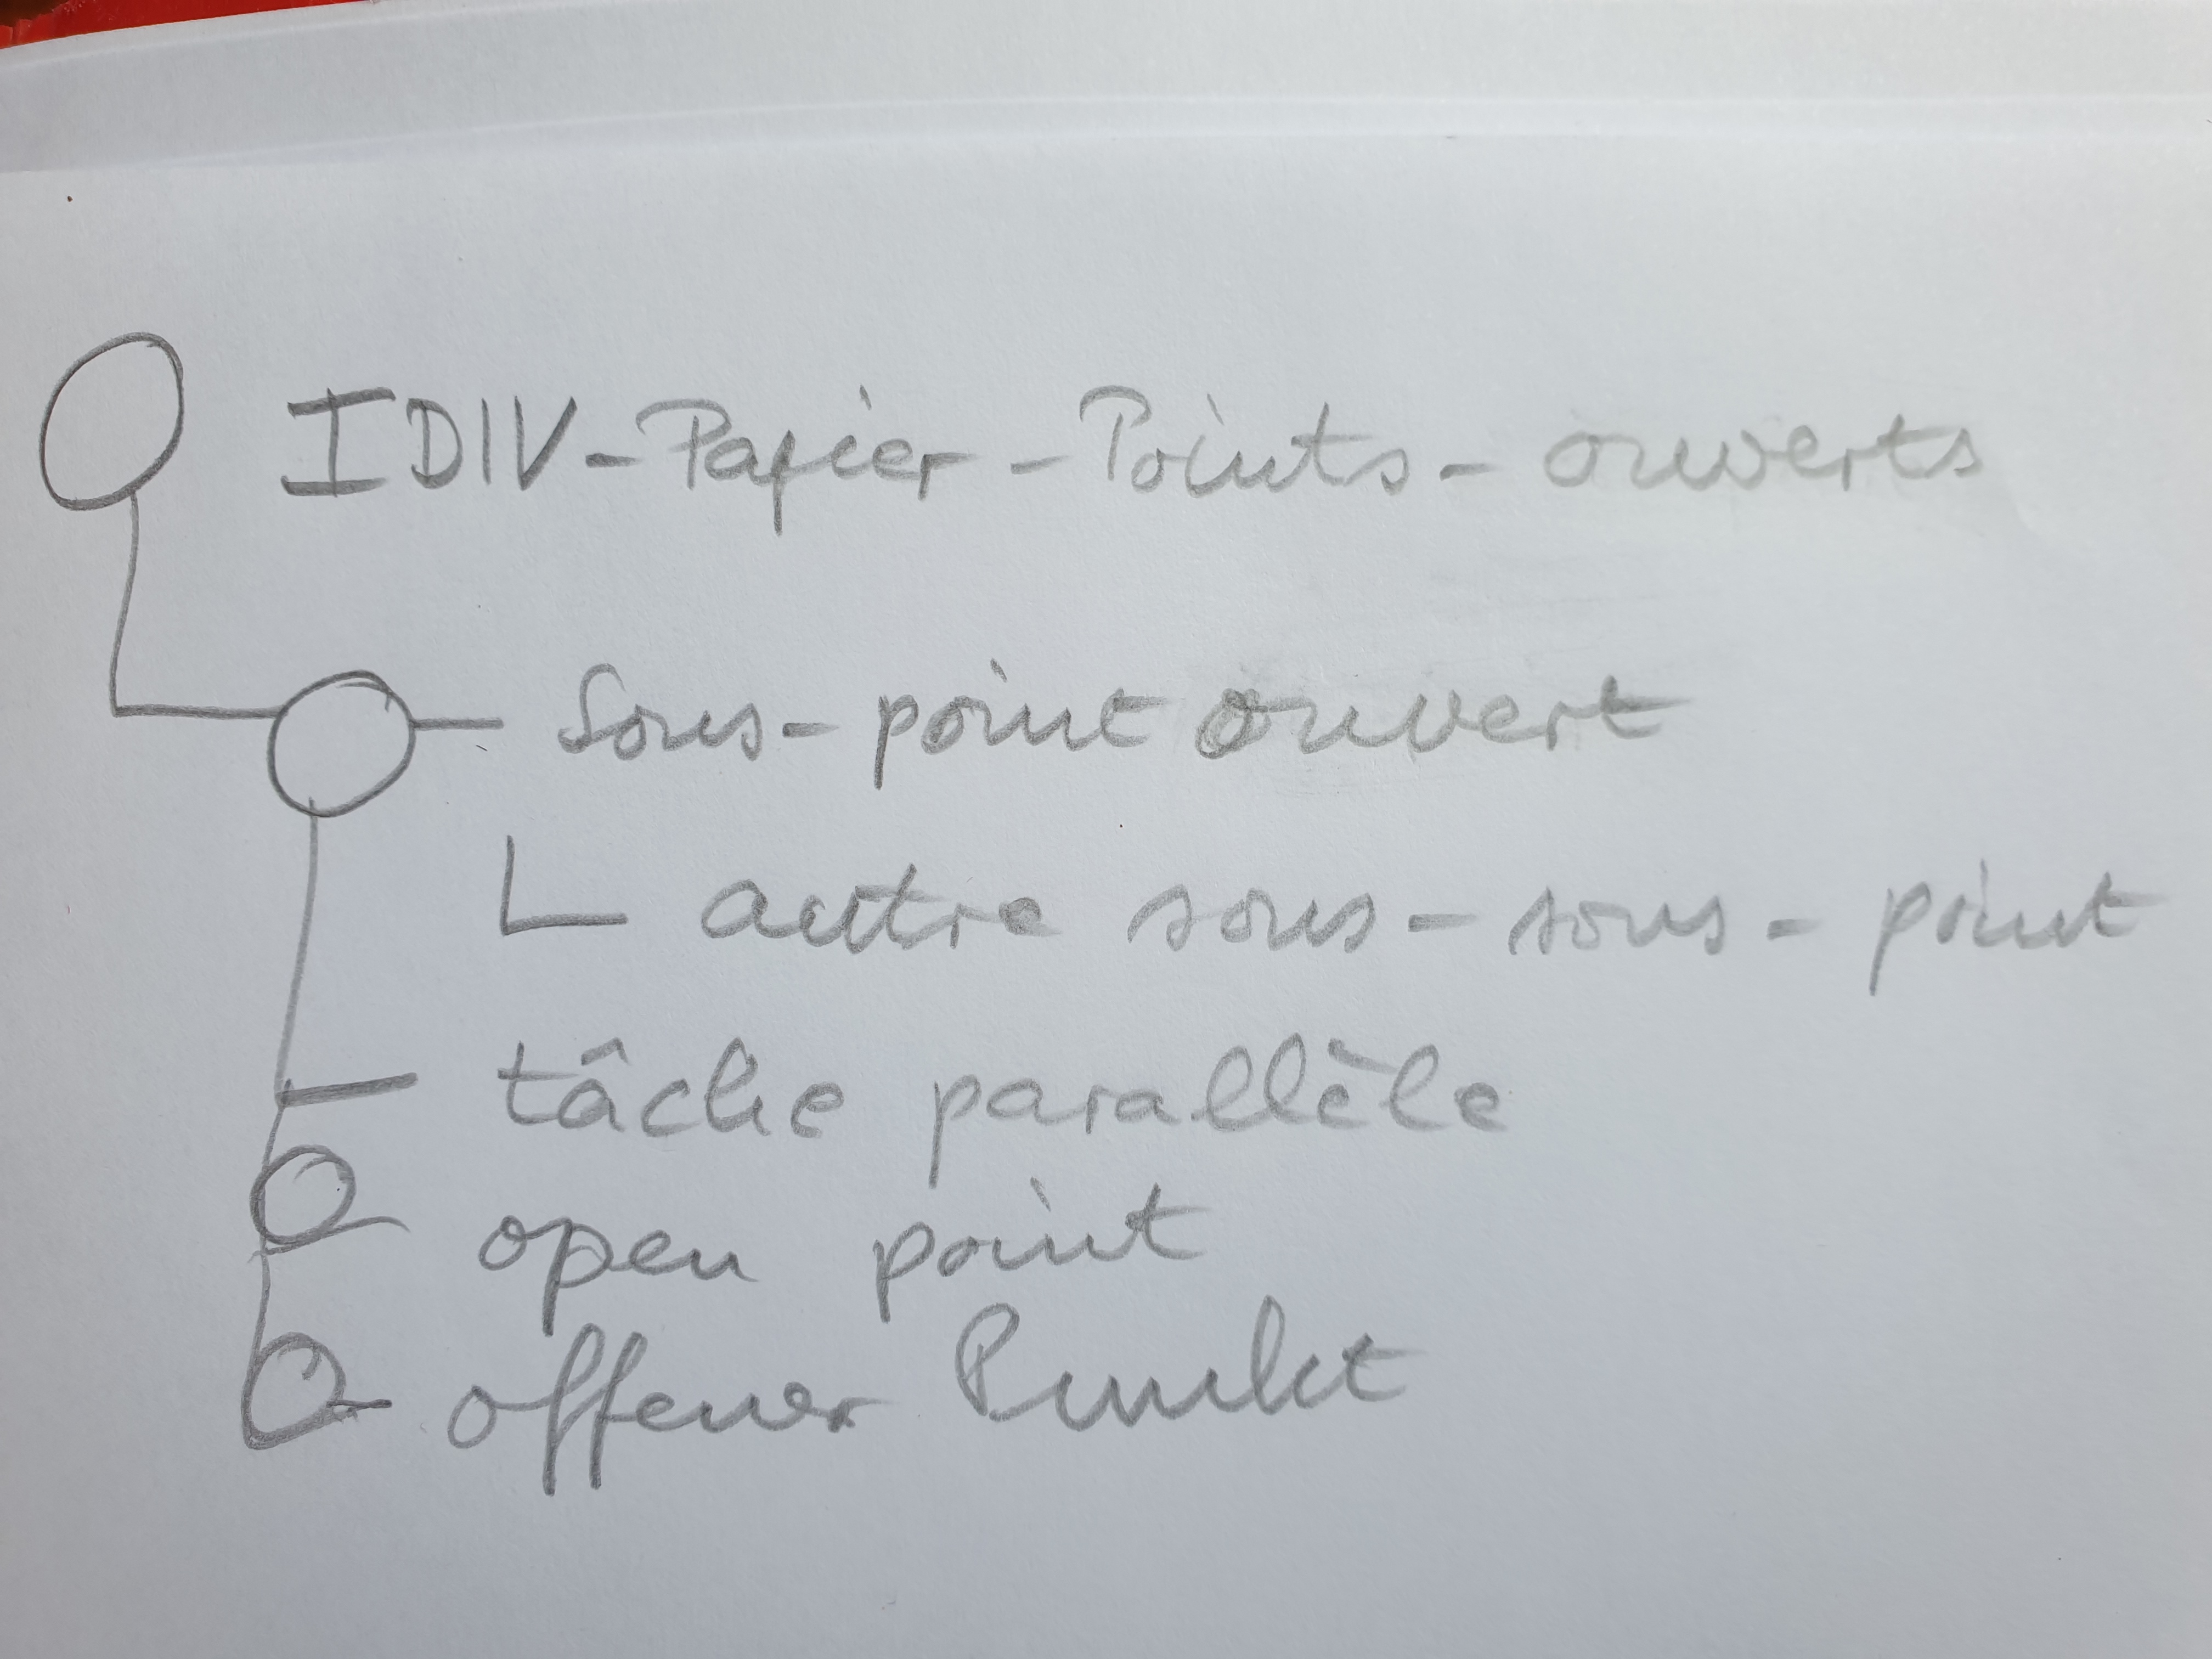 IDIV-Papier-Points-ouverts
Sous-point ouvert
autre sous-sous-point
tâche parallèle
open point
offener Punkt